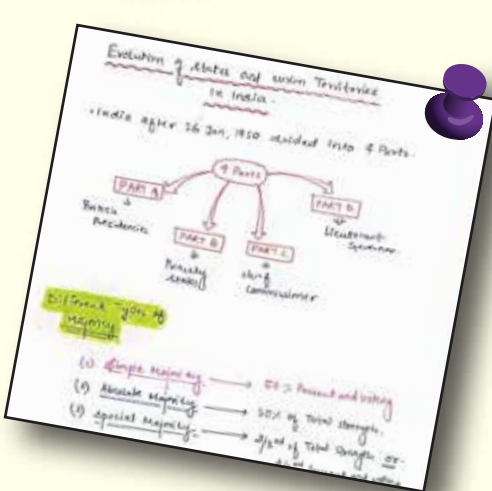 Evolution of States and Union Territories
in India.
• India after 26 Jan, 1950 divided into 4 Parts.
4 Parts
PART A
PART B
PART C
PART D
British
Presidencies
Princely
States
Chief
Commissioner
Lieutenant
Governor
Different Types of
Majority
(1) Simple Majority → 50% Present and voting
(2) Absolute Majority → 50% of Total strength.
(3) Special Majority → 2/3rd of Total Strength or
present and voting